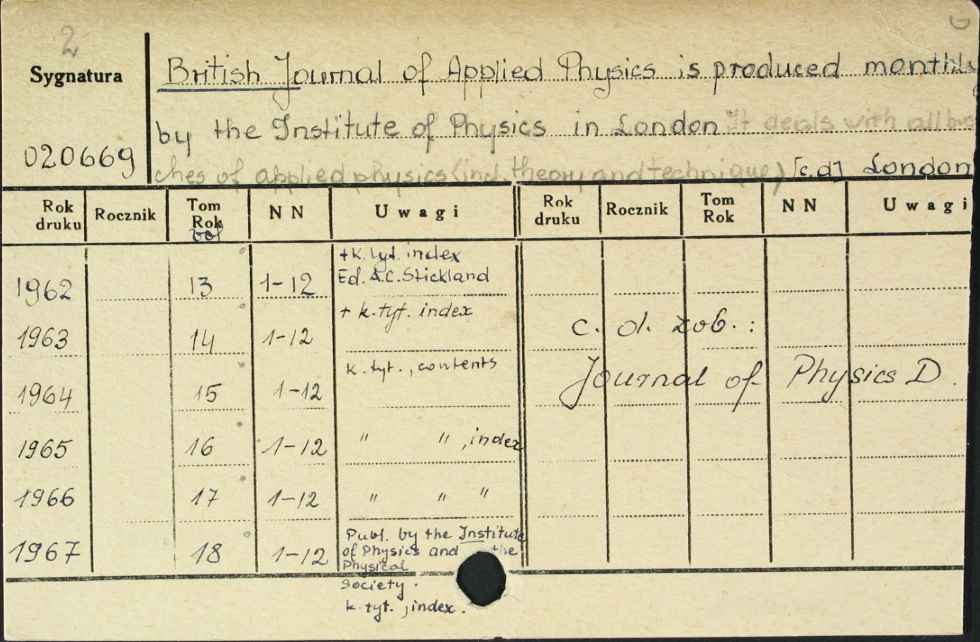 2
Sygnatura
020669
British Journal of Applied Physics is produced monthly
by the Institute of Physics in London It deals with all bran
ches of applied physics (incl. theory and technique) [c.d.] London
Rok druku Rocznik Tom Rok vol N N Uwagi Rok druku Rocznik Tom Rok N N Uwagi
1962 13 1-12 + k. tyt. index
Ed. A.C. Stickland
1963 14 1-12 + k. tyt. index
c. d. zob. :
1964 15 1-12 k. tyt., contents
Journal of Physics D.
1965 16 1-12 " " , index
1966 17 1-12 " " "
1967 18 1-12 Publ. by the Institute
of Physics and the
Physical
Society.
k. tyt., index.